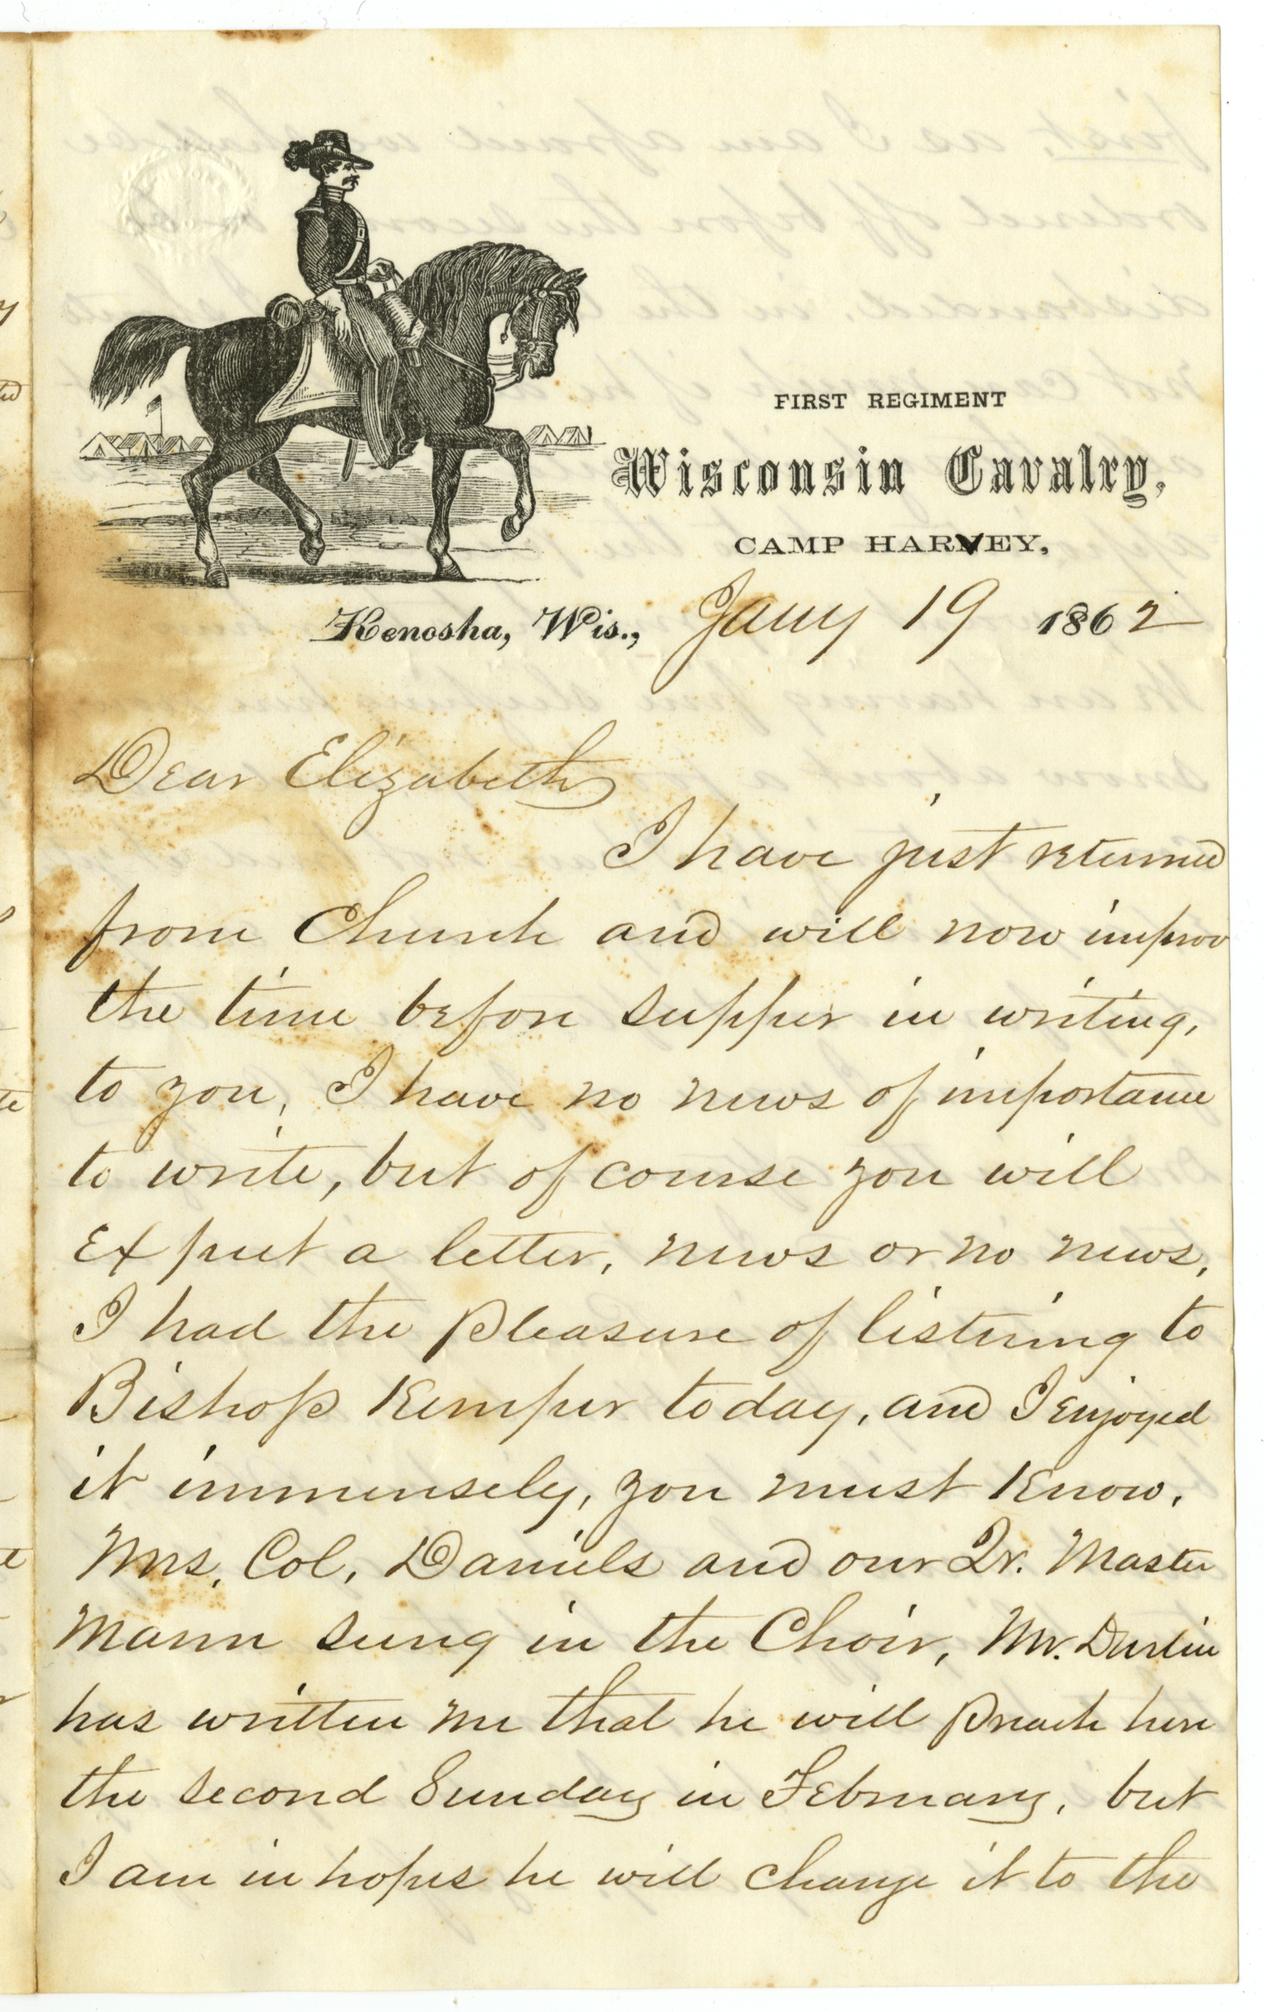 FIRST REGIMENT
Wisconsin Cavalry,
CAMP HARVEY,
Kenosha, Wis., Jany 19 1862
Dear Elizabeth
I have just returned
from Church and will now improv
the time before supper in writing,
to you, I have no news of importance
to write, but of course you will
Expect a letter, news or no news,
I had the pleasure of listening to
Bishop Kemper today, and I Enjoyed
it immensely, you must know,
Mrs, Col, Daniels and our Qr. Master
Mann sung in the Choir, Mr. Durlin
has written me that he will Preach here
the second Sunday in February, but
I am in hopes he will change it to the